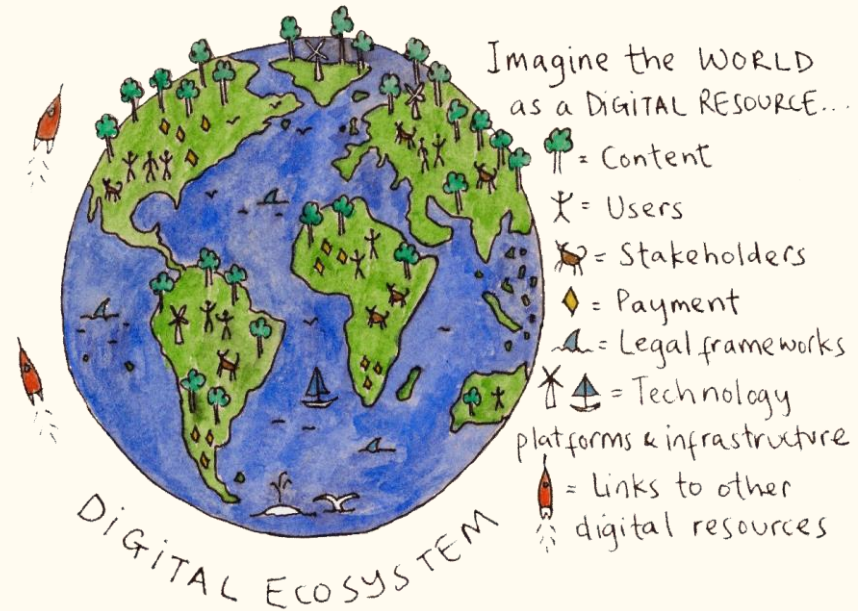 Imagine the WORLD
as a DiGiTAL RESOURCE...
= Content
= Users
= Stakeholders
= Payment
= Legal frameworks
= Technology
platforms & infrastructure
= Links to other
digital resources
DiGiTAL ECOSYSTEM